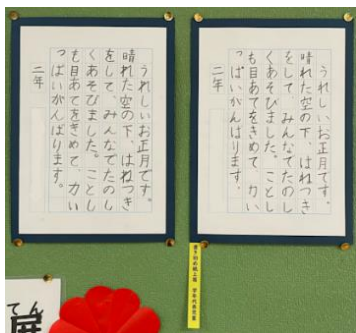 うれしいお正月です。
晴れた空の下、はねつき
をして、みんなでたのし
くあそびました。ことし
も目あてをきめて、力い
っぱいがんばります。
二年
うれしいお正月です。
晴れた空の下、はねつき
をして、みんなでたのし
くあそびました。ことし
も目あてをきめて、力い
っぱいがんばります。
二年
展
てん